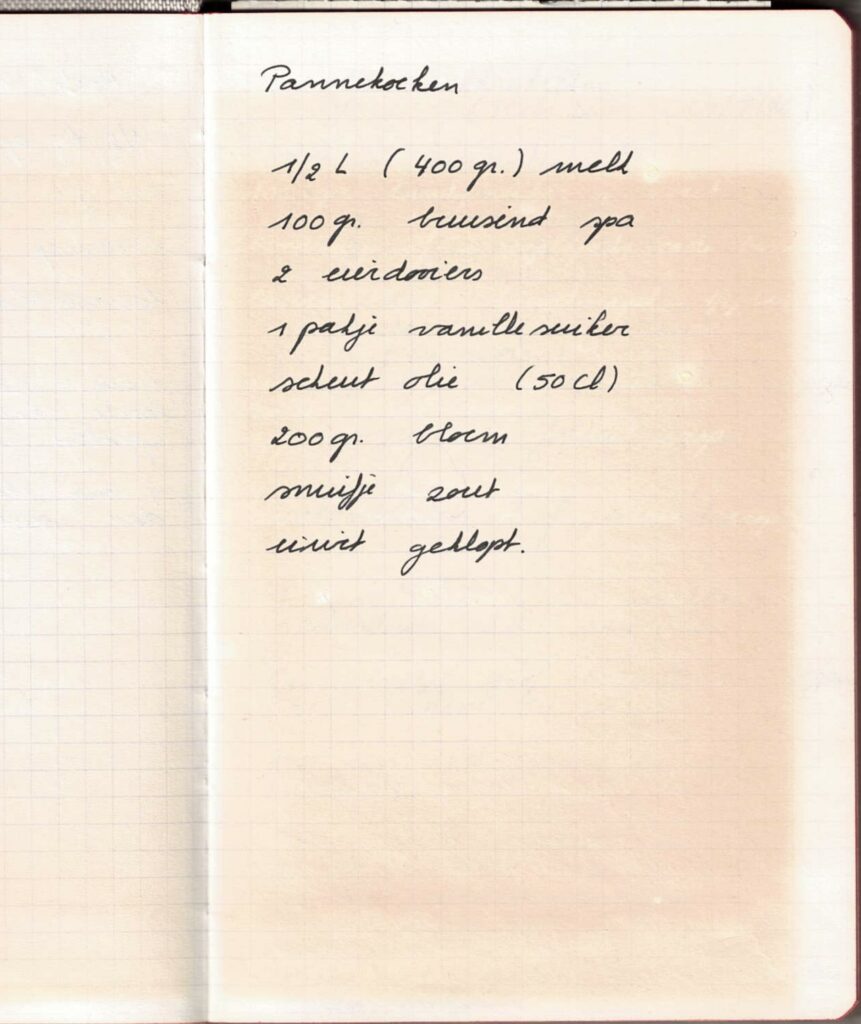 Pannekoeken
1/2 L (400 gr.) melk
100 gr. bruisend spa
2 eierdooiers
1 pakje vanillesuiker
scheut olie (50 cl)
200 gr. bloem
snuifje zout
eiwit geklopt.